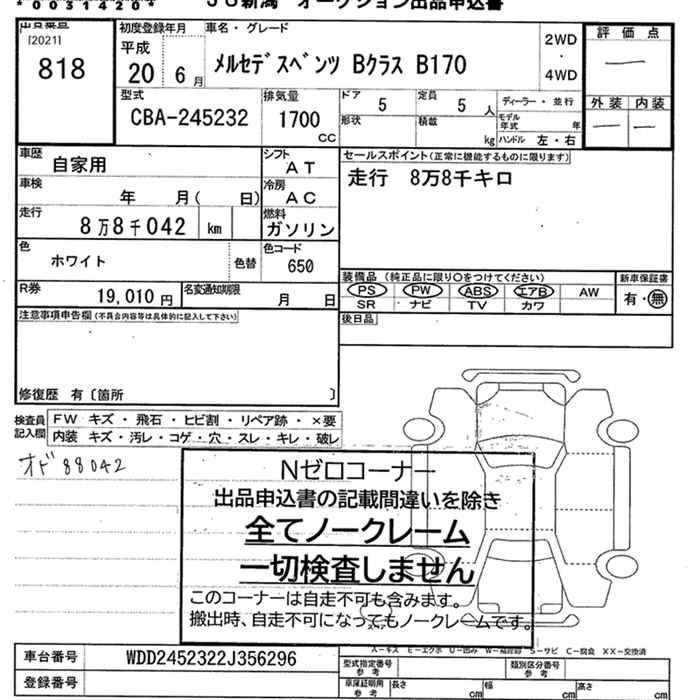 *00314204*
JU新潟 オークション出品申込書
出品番号
[2021]
818
初度登録年月
平成
20 6月
車名・グレード
メルセデスベンツ Bクラス B170
2WD
・
4WD
評価点
—
外装 内装
— —
型式
CBA-245232
排気量
1700
CC
ドア 5
定員 5人
形状
積載 kg
ディーラー・並行
モデル年式 年
ハンドル 左・右
車歴 自家用
シフト AT
車検 年 月( 日)
冷房 AC
走行 8万8千042 km
燃料 ガソリン
色 ホワイト 色替
色コード 650
R券 19,010円
名変通知期限 月 日
セールスポイント(正常に機能するものに限ります)
走行 8万8千キロ
装備品(純正品に限り○をつけてください)
PS PW ABS エアB AW
SR ナビ TV カワ
新車保証書
有・無
後日品
注意事項申告欄(不具合内容等は具体的に記入して下さい)
修復歴 有〔箇所 〕
検査員記入欄
FW キズ・飛石・ヒビ割・リペア跡・×要
内装 キズ・汚レ・コゲ・穴・スレ・キレ・破レ
オド88042
Nゼロコーナー
出品申込書の記載間違いを除き
全てノークレーム
一切検査しません
このコーナーは自走不可も含みます。
搬出時、自走不可になってもノークレームです。
A-キズ E-エクボ U-凹み W-補修跡 S-サビ C-腐食 XX-交換済
車台番号 WDD2452322J356296
登録番号
型式指定番号 参考
類別区分番号 参考
車庫証明用 参考
長さ cm
幅 cm
高さ cm